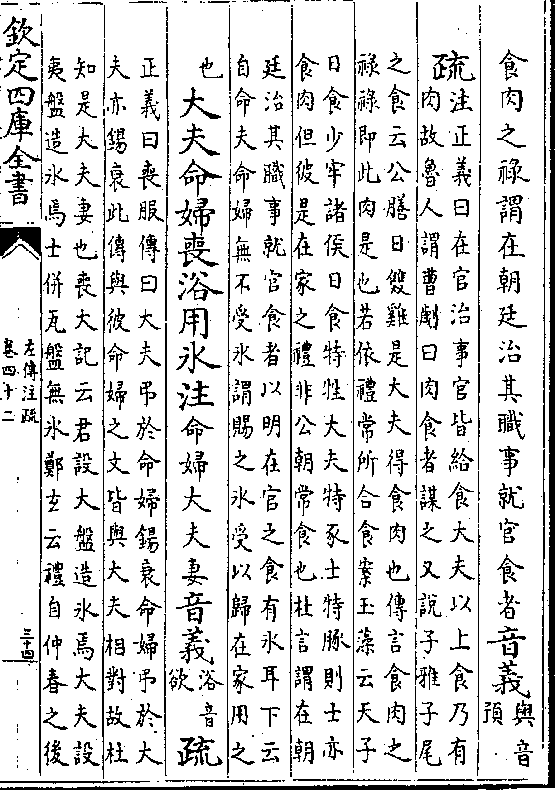 食肉之禄謂在朝廷治其職事就官食者音義與音
預
疏注正義曰在官治事官皆給食大夫以上食乃有
肉故魯人謂曹劌曰肉食者謀之又說子雅子尾
之食云公膳日雙雞是大夫得食肉也傳言食肉之
禄禄即此肉是也若依禮常所合食案玉藻云天子
日食少牢諸侯日食特牲大夫特豕士特豚則士亦
食肉但彼是在家之禮非公朝常食也杜言謂在朝
廷治其職事就官食者以明在官之食有氷耳下云
自命夫命婦無不受氷謂賜之氷受以歸在家用之
也大夫命婦喪浴用氷注命婦大夫妻音義浴音
欲疏
正義曰喪服傳曰大夫吊於命婦錫衰命婦吊於大
夫亦錫衰此傳與彼命婦之文皆與大夫相對故杜
知是大夫妻也喪大記云君設大盤造氷焉大夫設
夷盤造氷焉士併瓦盤無氷鄭玄云禮自仲春之後
欽定四庫全書
左傳注疏
卷四十二
三十四